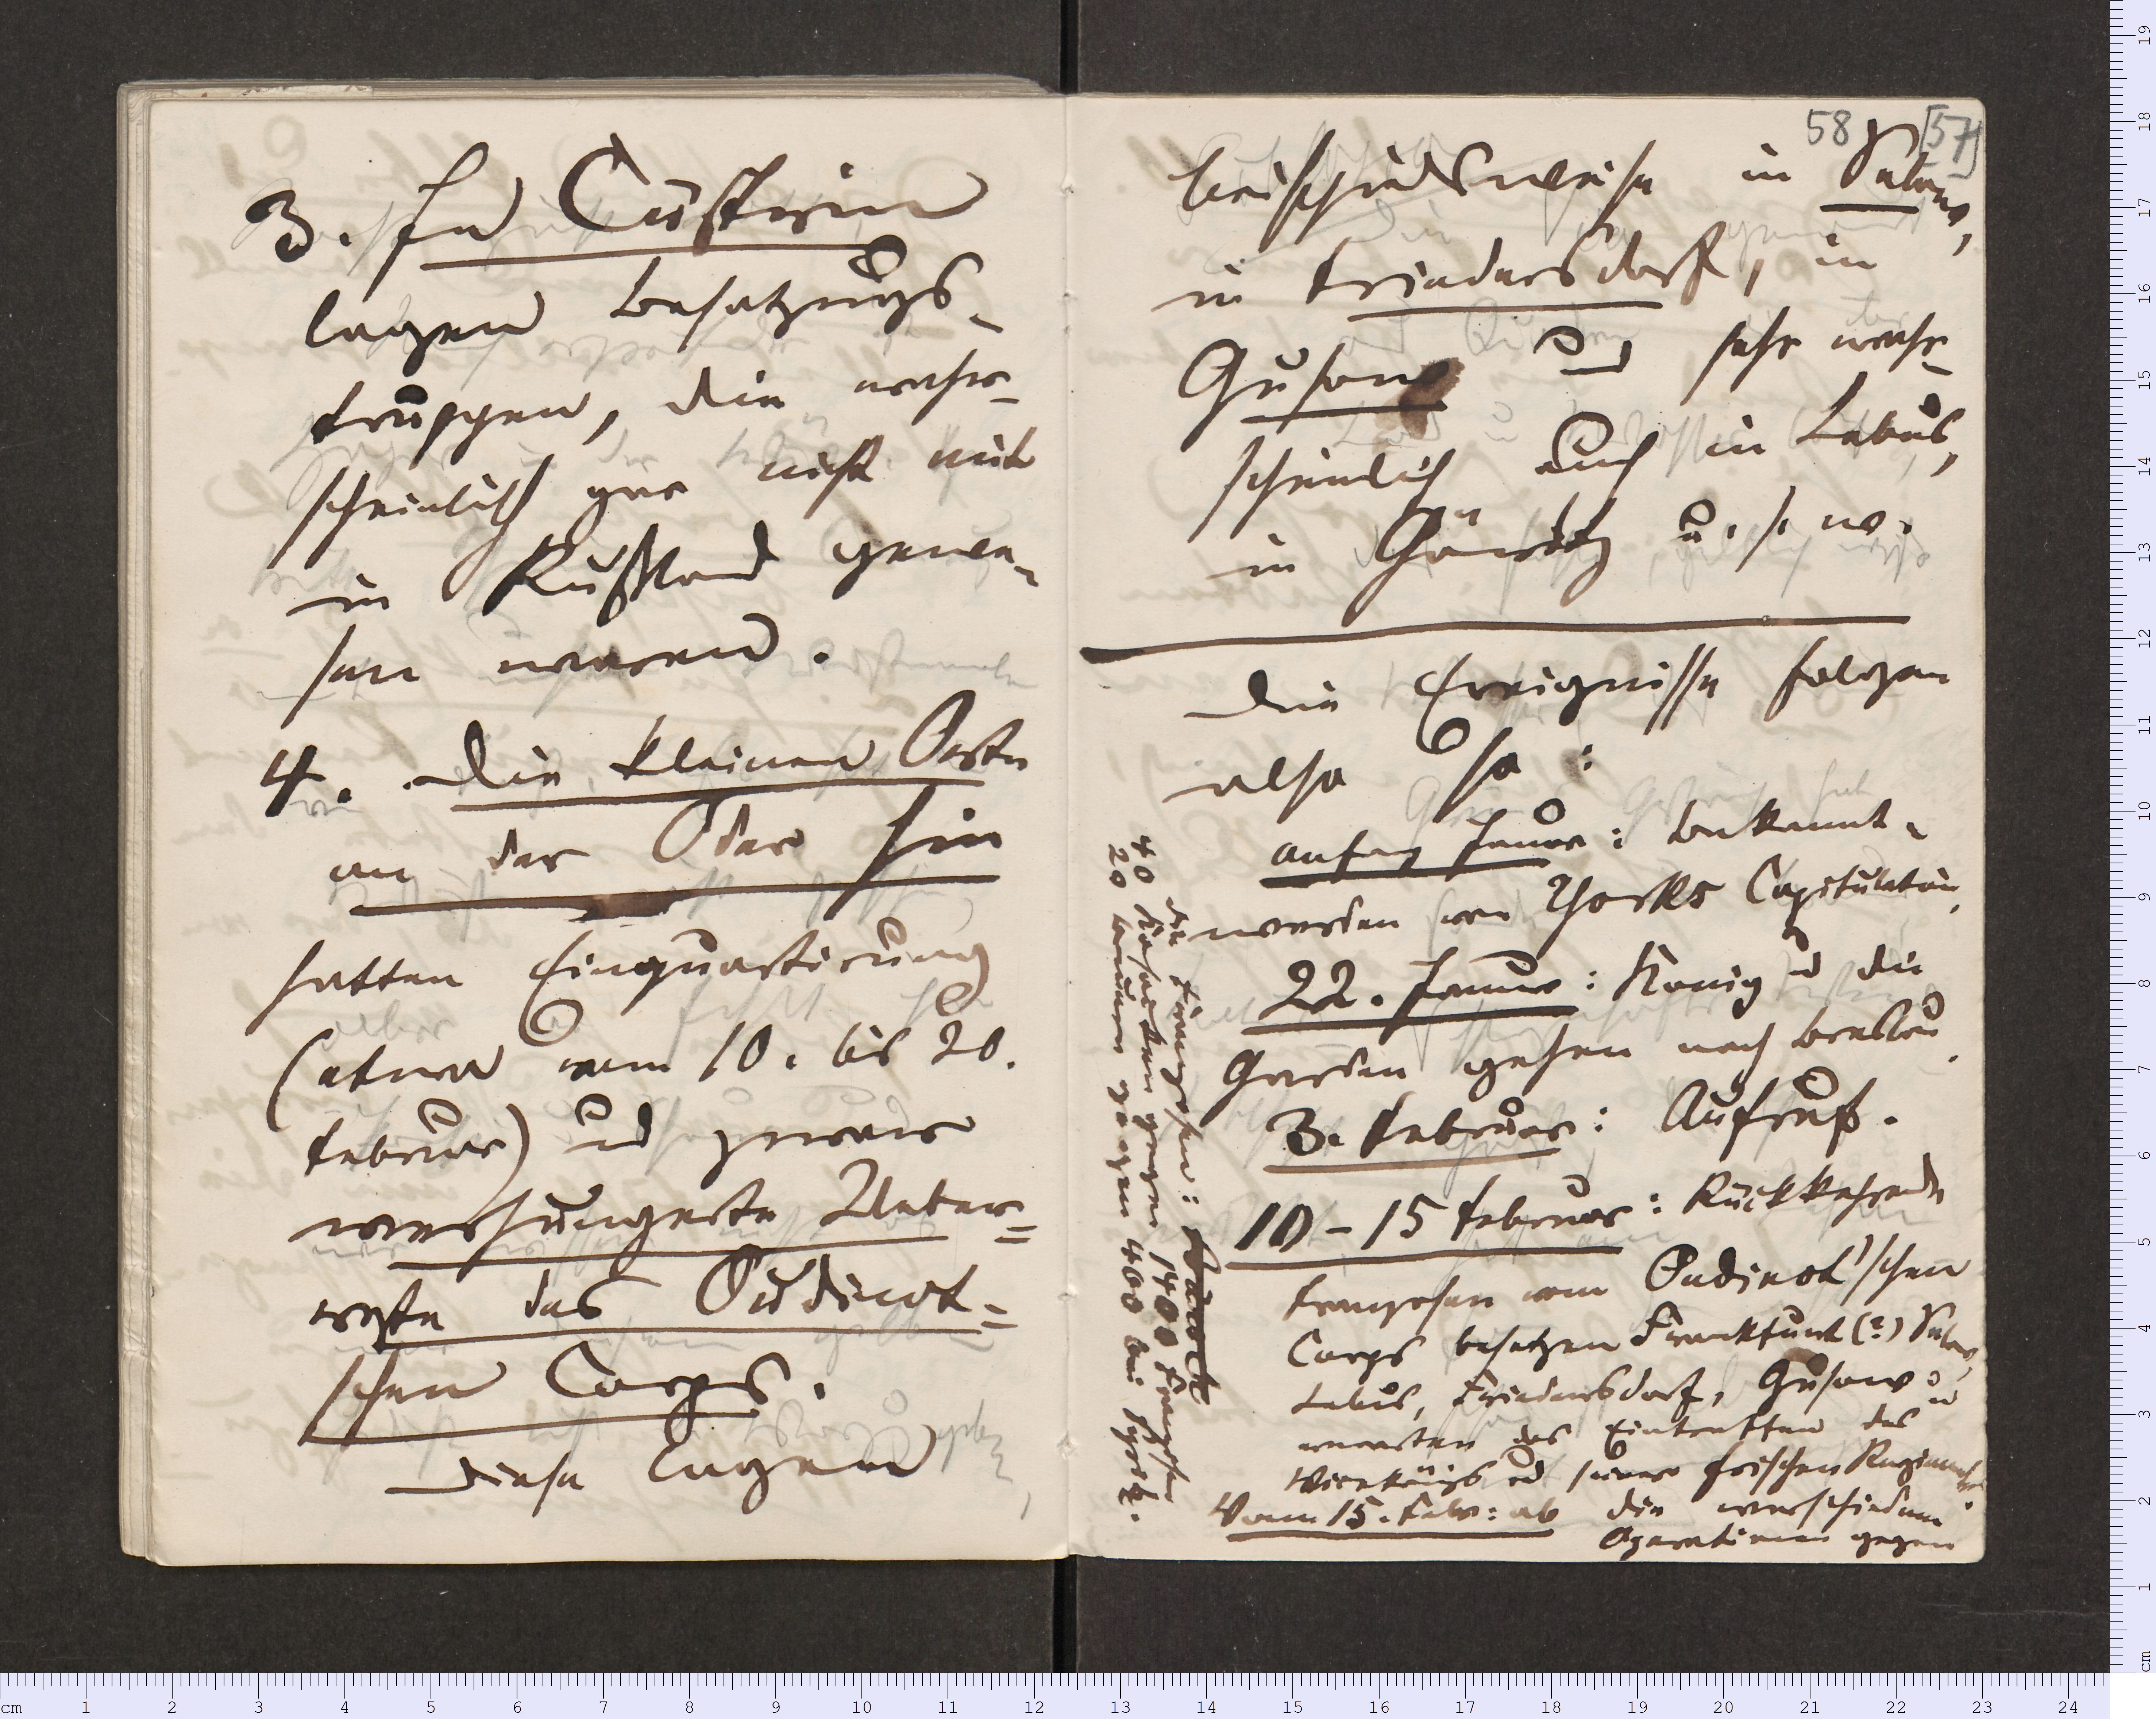 3. In Cüstrin
lagen Besatzungs-
truppen, die wahr-
scheinlich gar nicht mit
in Rußland gewe-
sen waren.
4. Die kleinen Orte
an der Oder hin
hatten Einquartirung
(etwa vom 10. bis 20.
Februar) und zwar
verhungerte Ueber-
reste des Oudinot-
schen Corps.
Diese lagen
58 [57]
beispielsweise in Selow,
in Friedersdorf, in
Gusow und sehr wahr-
scheinlich auch in Lebus,
in Göritz u. s. w.
Die Ereignisse folgen
also so:
Anfang Januar: Bekannt-
werden von Yorks Capitulation.
22. Januar: König u die
Garden gehen nach Breslau.
3. Februar: Aufruf.
10-15 Februar: Rückkehrende
Franzosen vom Oudinot'schen
Corps besetzen Frankfurt (?) Selow,
Lebus, Friedersdorf, Gusow u
erwarten das Eintreffen des
Vicekönigs und seiner frischen Regimenter.
Vom 15. Febr: ab die verschiednen
Operationen gegen
die Franzosen:
40 Kosacken gegen 1400 Franzosen
20 Bauern gegen 400 bei